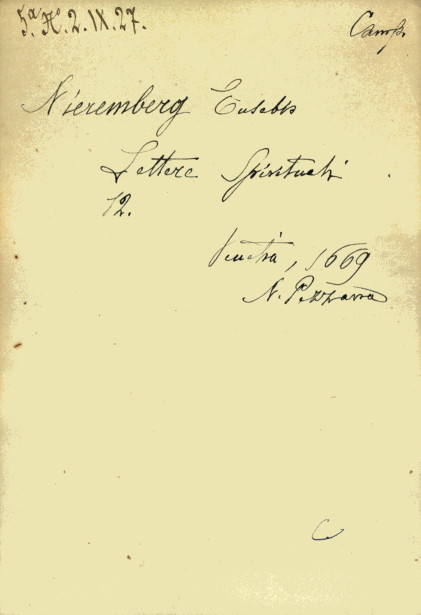 5ª H. 2. IX. 27.
Camp.
Nieremberg Eusebio
Lettere Spirituali
12.
Venetia, 1669
N. Pezzana
C